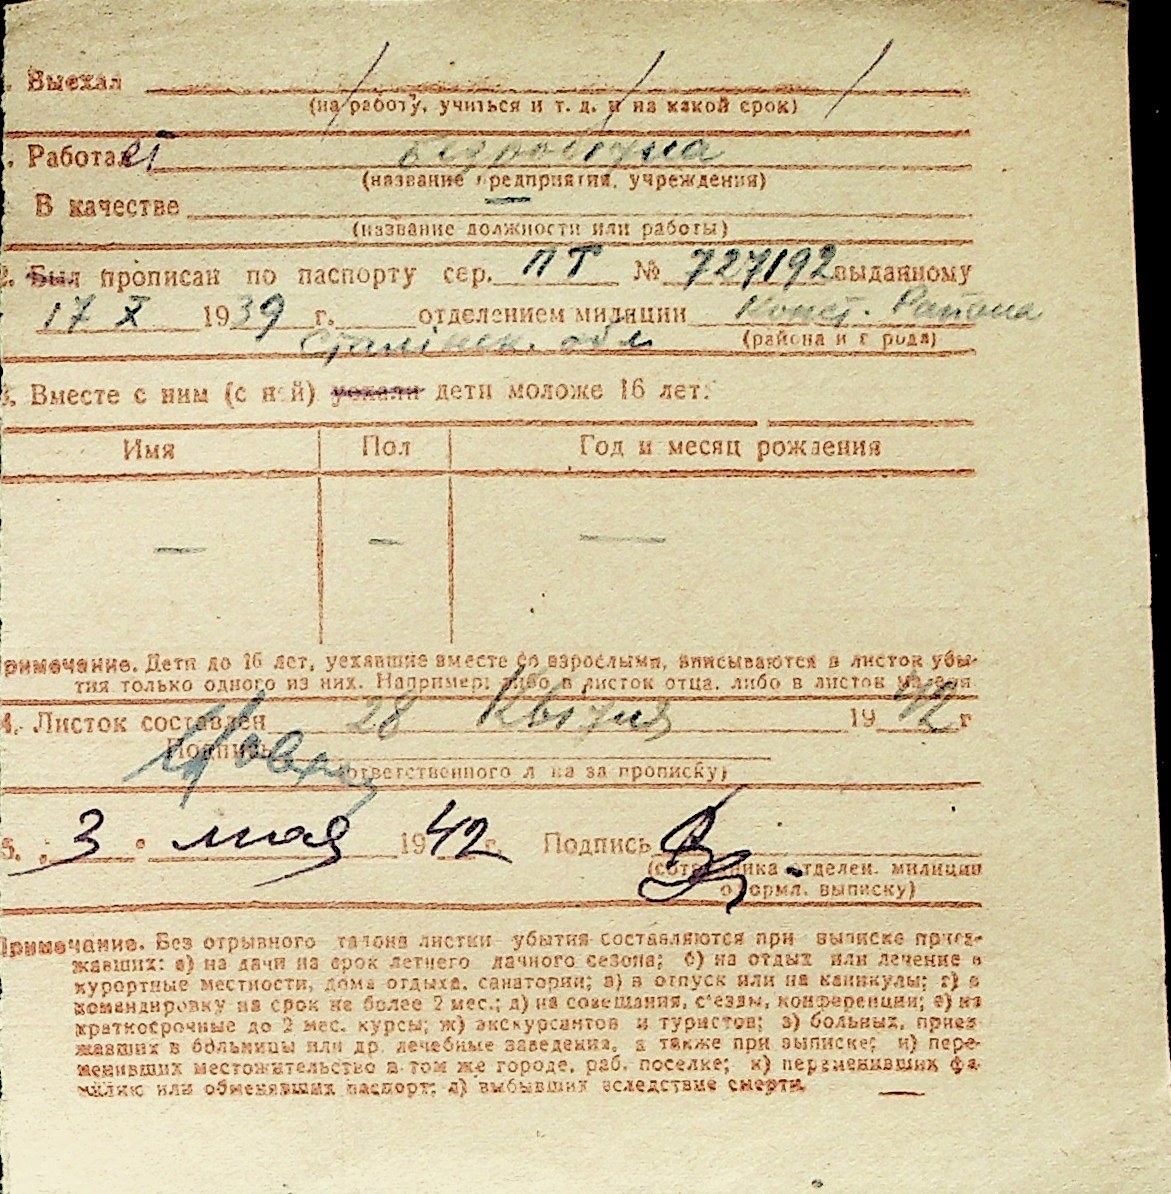 . Выехал
(на работу, учиться и т. д. и на какой срок)
. Работает безробітна
(название предприятия, учреждения)
В качестве
(название должности или работы)
2. Был прописан по паспорту сер. ПТ № 727192 выданному
17 X 1939 г. отделением милиции Конст. Района
Сталінськ. обл (района и города)
3. Вместе с ним (с ней) уехали дети моложе 16 лет:
Имя Пол Год и месяц рождения
— — —
Примечание. Дети до 16 лет, уехавшие вместе со взрослыми, вписываются в листок убы-
тия только одного из них. Например: либо в листок отца, либо в листок матери
4. Листок составлен 28 Квітня 1942 г
Подпись
(ответственного лица за прописку)
5. „ 3 " мая 1942 г. Подпись
(сотрудника отделен. милиции
оформл. выписку)
Примечание. Без отрывного талона листки убытия составляются при выписке приез-
жавших: а) на дачи на срок летнего дачного сезона; б) на отдых или лечение в
курортные местности, дома отдыха, санатории; в) в отпуск или на каникулы; г) в
командировку на срок не более 2 мес.; д) на совещания, съезды, конференции; е) на
краткосрочные до 2 мес. курсы; ж) экскурсантов и туристов; з) больных, приез-
жавших в больницы или др. лечебные заведения, а также при выписке; и) пере-
менивших местожительство в том же городе, раб. поселке; к) переменивших фа-
милию или обменявших паспорт; л) выбывших вследствие смерти.